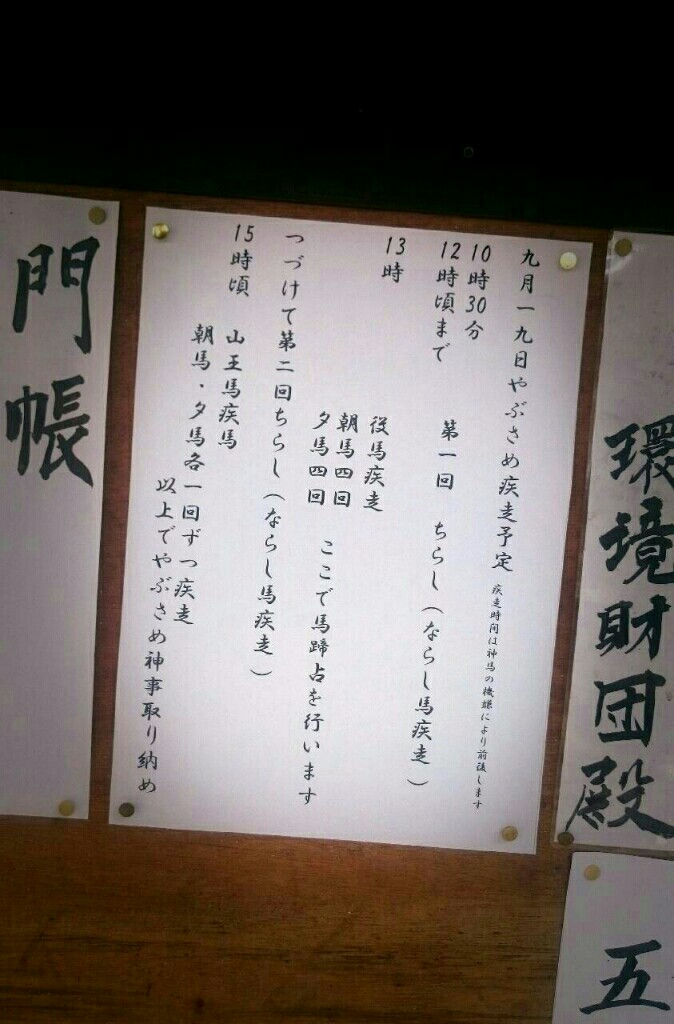 環境財団殿
五
九月一九日やぶさめ疾走予定
疾走時間は神馬の機嫌により前後します
10時30分
12時頃まで 第一回 ちらし（ならし馬疾走）
13時
役馬疾走
朝馬四回
夕馬四回 ここで馬蹄占を行います
つづけて第二回ちらし（ならし馬疾走）
15時頃
山王馬疾馬
朝馬・夕馬各一回ずつ疾走
以上でやぶさめ神事取り納め
門帳